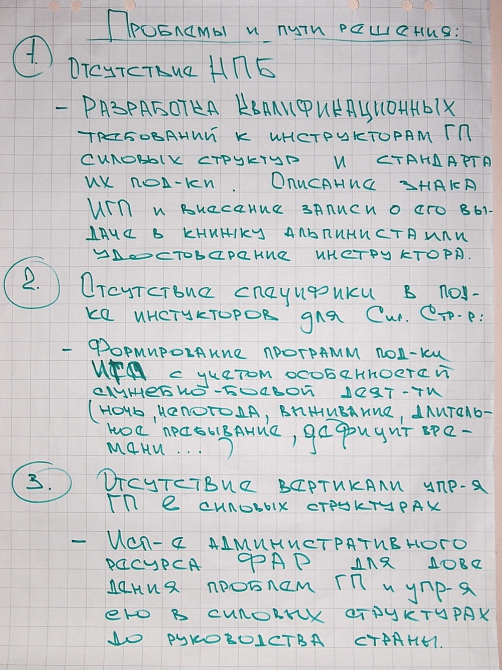 Проблемы и пути решения:
1. Отсутствие НПБ
- Разработка квалификационных
требований к инструкторам ГП
силовых структур и стандарта
их под-ки. Описание знака
ИГП и внесение записи о его вы-
даче в книжку альпиниста или
удостоверение инструктора.
2. Отсутствие специфики в под-
ке инстукторов для Сил. Стр-р:
- Формирование программ под-ки
ИГП с учетом особенностей
служебно-боевой деят-ти
(ночь, непогода, выживание, длитель-
ное пребывание, дефицит вре-
мени...)
3. Отсутствие вертикали упр-я
ГП в силовых структурах
- Исп-е административного
ресурса ФАР для дове
дения проблем ГП и упр-я
ею в силовых структурах
до руководства страны.